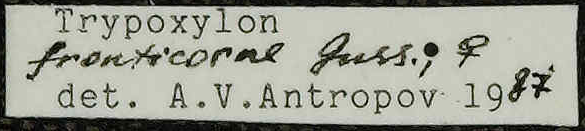 Trypoxylon
fronticorne Guss.; ♀
det. A.V.Antropov 1987